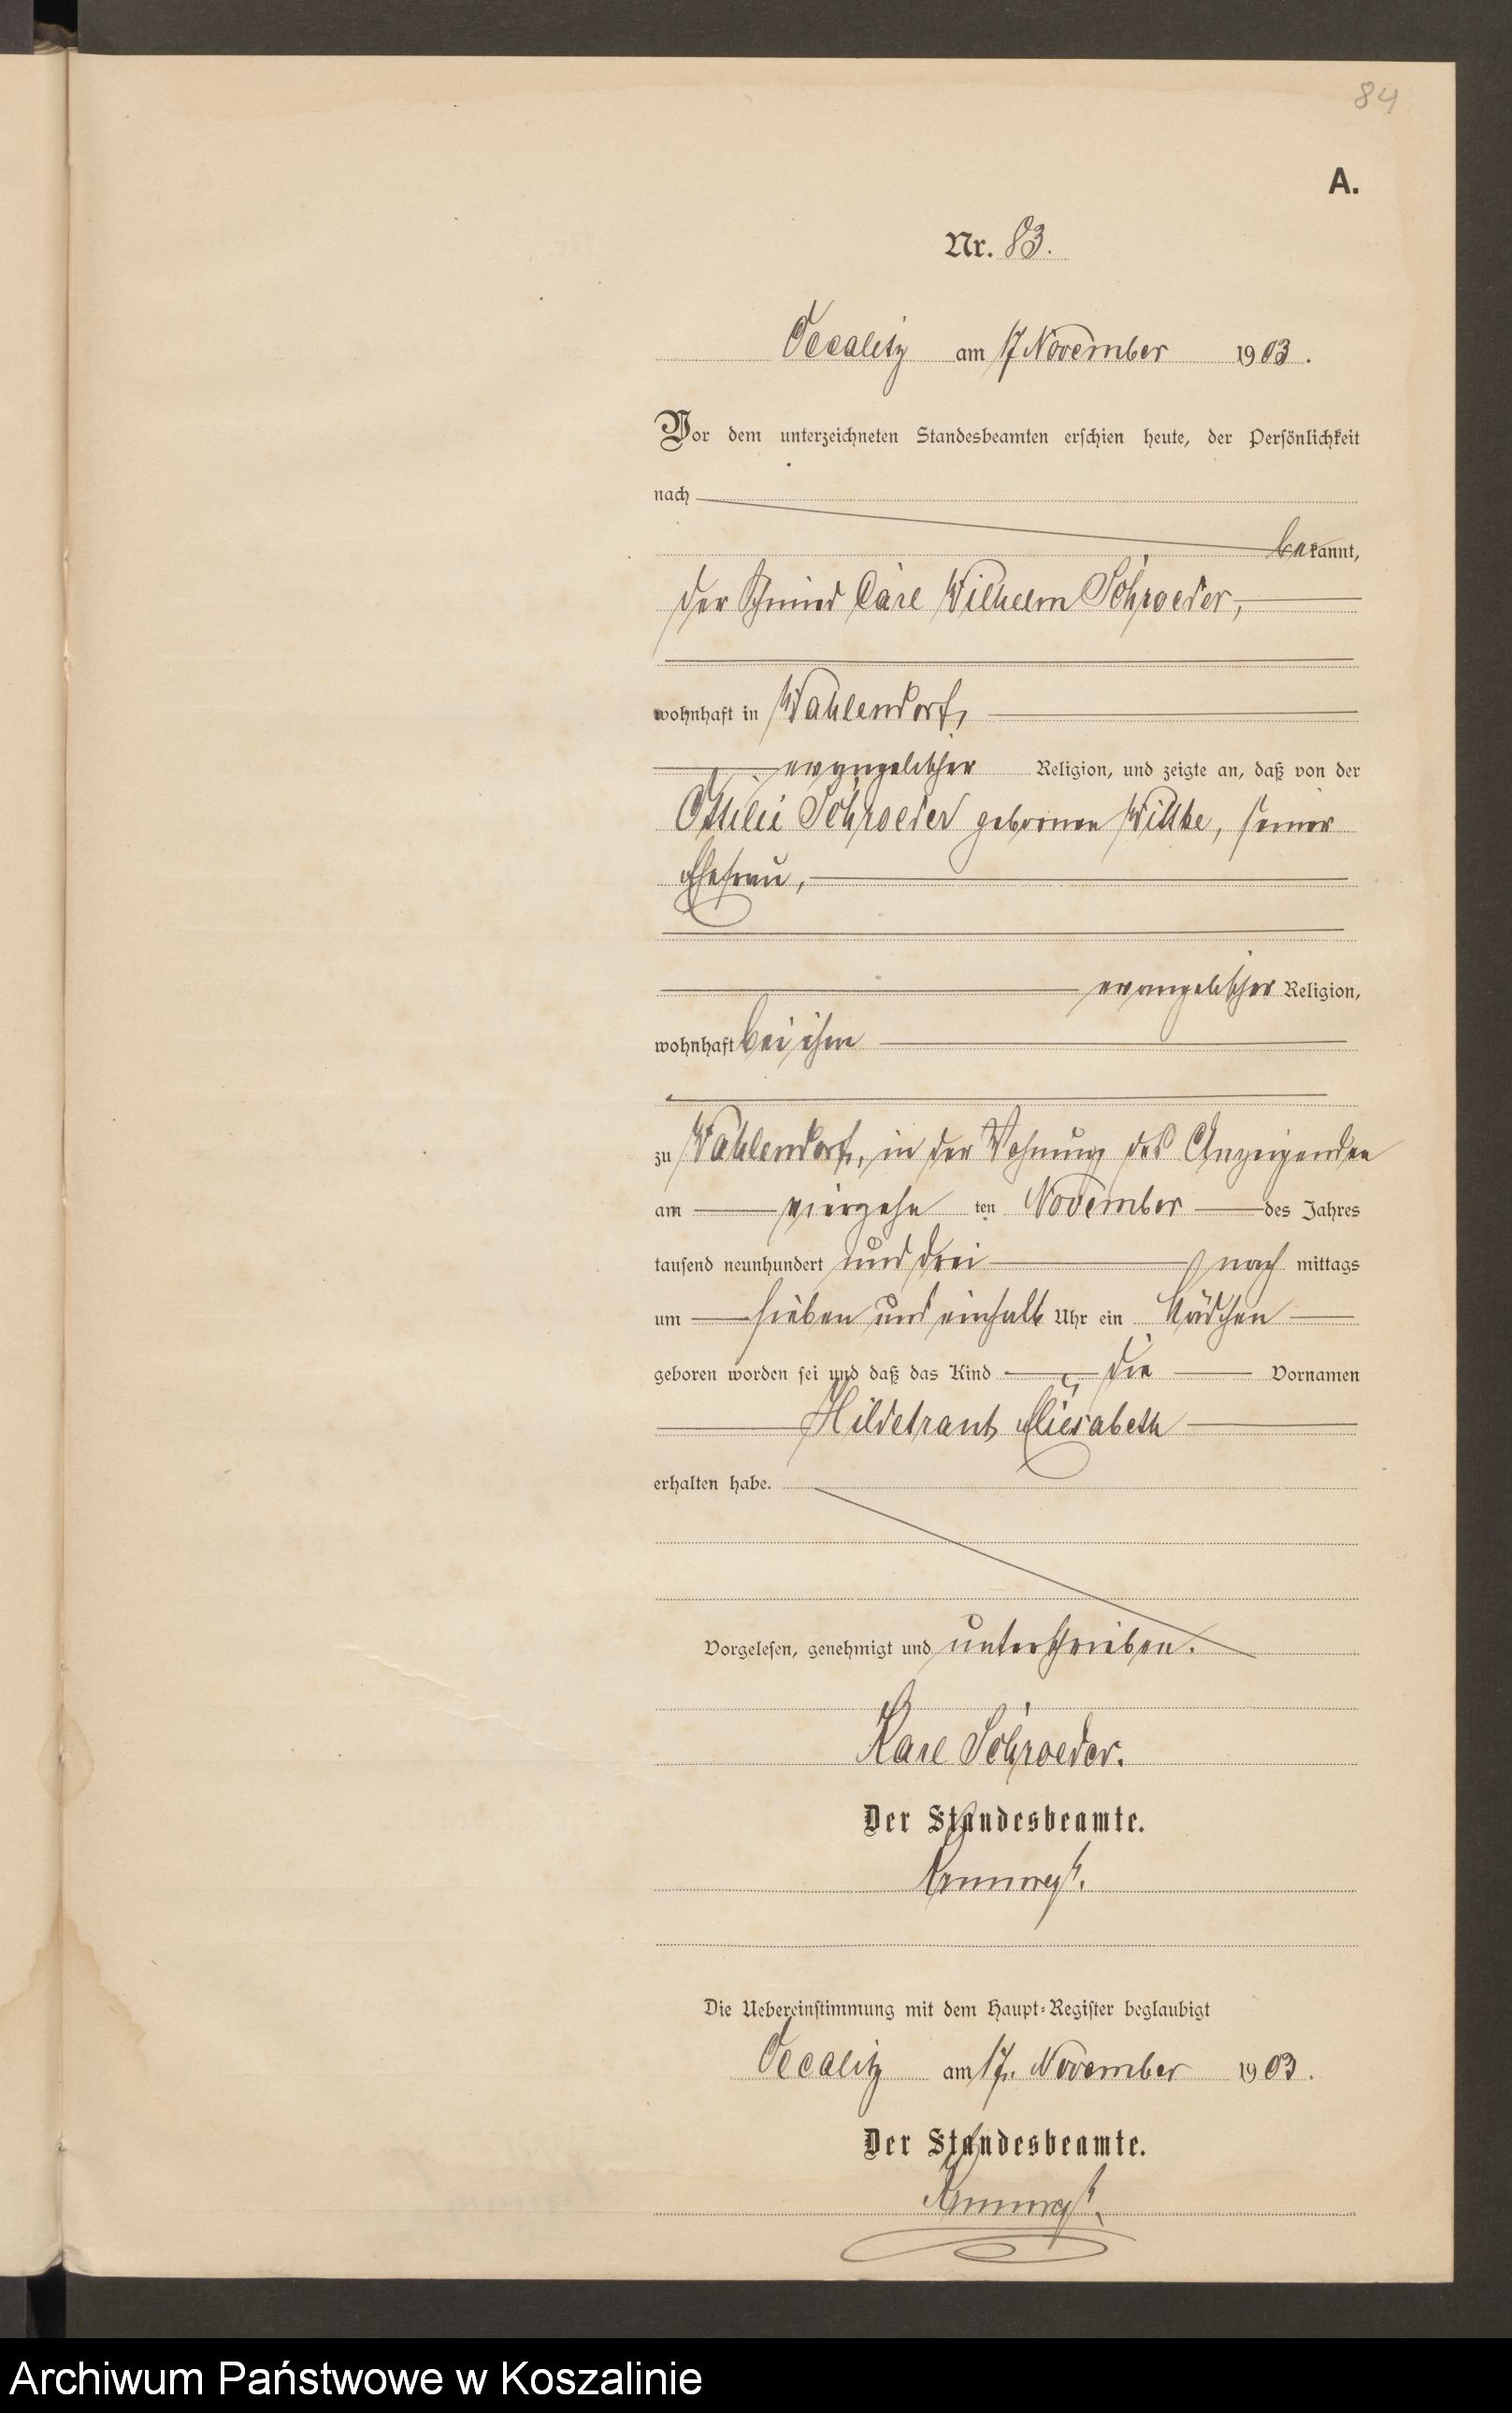 84
A.
Nr. 83.
Occalitz am 17 November 1903.
Vor dem unterzeichneten Standesbeamten erschien heute, der Persönlichkeit
nach
bekannt,
der Schmied Carl Wilhelm Schroeder,
wohnhaft in Wahlendorf,
evangelischer Religion, und zeigte an, daß von der
Ottilie Schroeder gebornen Wittke, seiner
Ehefrau,
evangelischer Religion,
wohnhaft bei ihm
zu Wahlendorf, in der Wohnung des Anzeigenden
am vierzehn ten November des Jahres
tausend neunhundert und drei nach mittags
um sieben und einhalb Uhr ein Mädchen
geboren worden sei und daß das Kind die Vornamen
Hildetraut Eliesabeth
erhalten habe.
Vorgelesen, genehmigt und unterschrieben.
Karl Schroeder.
Der Standesbeamte.
Die Uebereinstimmung mit dem Haupt-Register beglaubigt
Occalitz am 17. November 1903.
Der Standesbeamte.
Archiwum Państwowe w Koszalinie